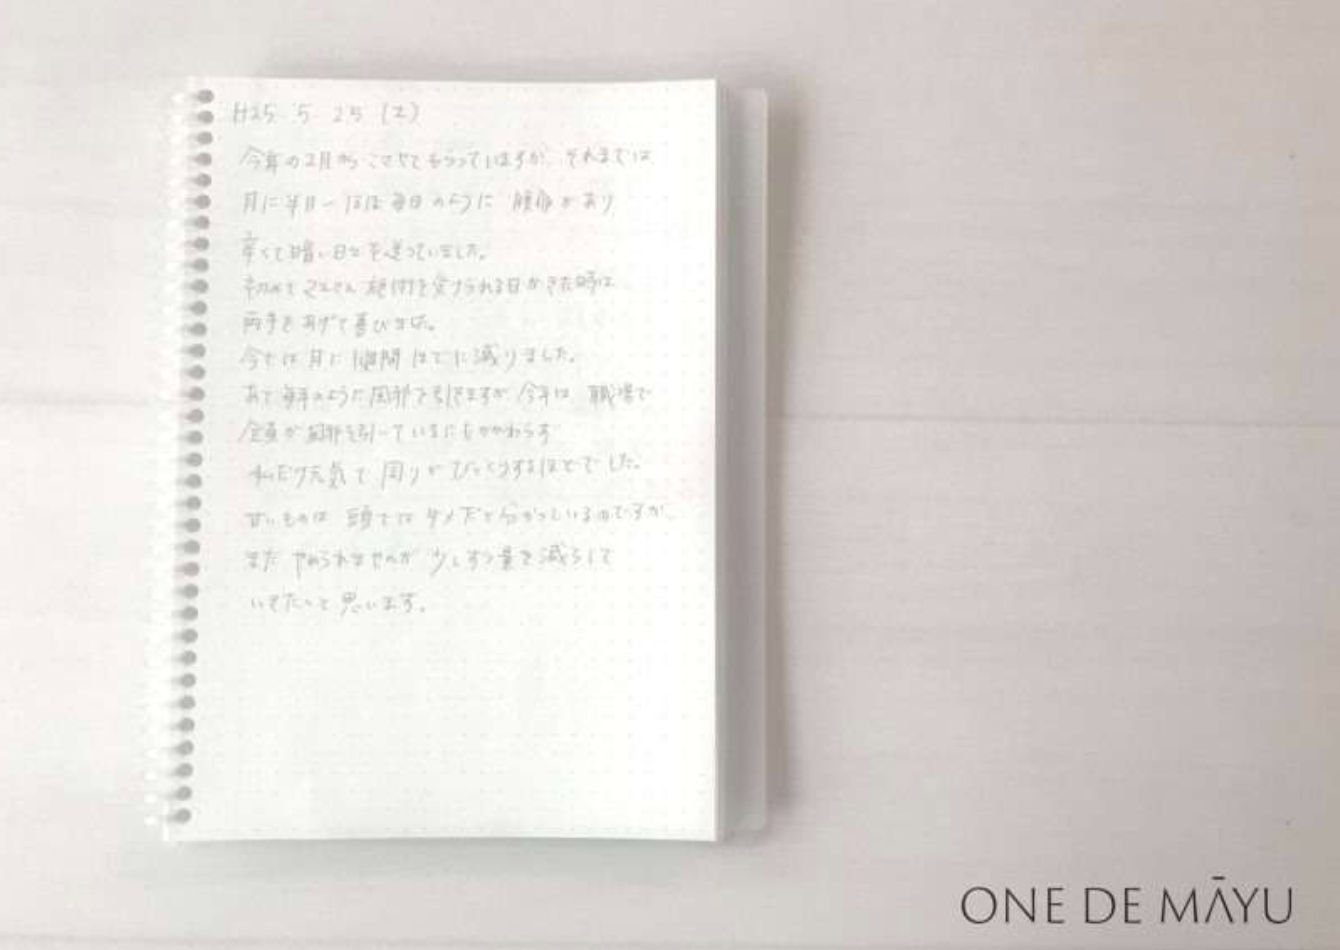 H25 5 25 (土)
今年の2月から こさせてもらっていますが、それまでは
月に半月〜ほぼ毎日のように 腹痛があり
辛くて暗い日々を送っていました。
初めて さんの施術を受けられる日がきた時は
両手をあげて喜びました。
今では月に1週間ほどに減りました。
あと毎年のように風邪を引きますが 今年は 職場で
全員が風邪を引いているにもかかわらず
私だけ元気で 周りがびっくりするほどでした。
甘いものは 頭ではダメだと分かっているのですが、
まだ やめられませんが 少しずつ量を減らして
いきたいと思います。
ONE DE MĀYU